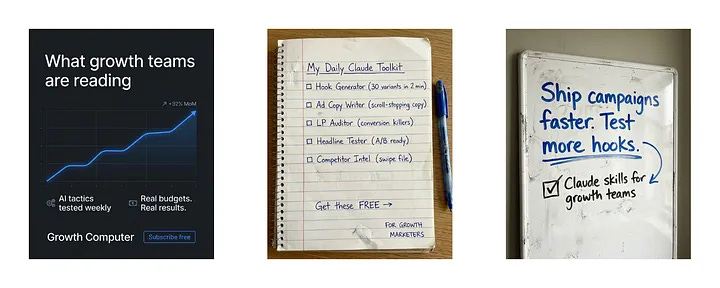 What growth teams
are reading
↗ +32% MoM
AI tactics
tested weekly
Real budgets.
Real results.
Growth Computer
Subscribe free
My Daily Claude Toolkit
☐ Hook Generator (30 variants in 2 min)
☐ Ad Copy Writer (scroll-stopping copy)
☐ LP Auditor (conversion killers)
☐ Headline Tester (A/B ready)
☐ Competitor Intel (swipe file)
Get these FREE →
FOR GROWTH
MARKETERS
Ship campaigns
faster. Test
more hooks.
☑ Claude skills for
growth teams